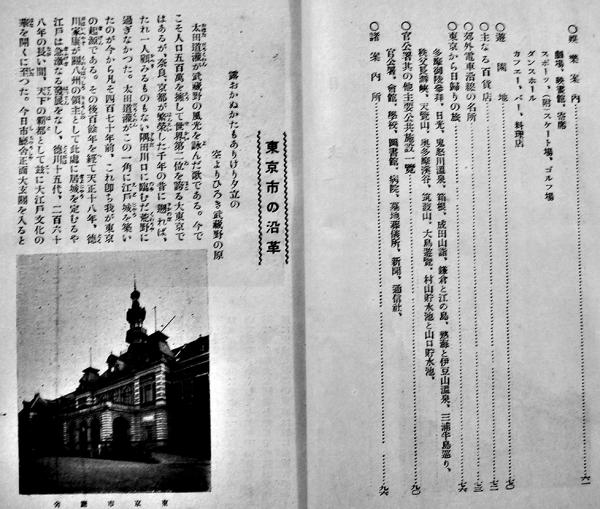 ○娯樂案内……六一
劇場、映畫館、寄席
スポーツ、(附)スケート場、ゴルフ場
ダンスホール
カフエー、バー、料理店
○遊園地……七〇
○主なる百貨店……七二
○郊外電車沿線の名所……七三
○東京から日歸りの旅……七六
多摩御陵參拜、日光、鬼怒川温泉、箱根、成田山詣、鎌倉と江の島、熱海と伊豆山温泉、三浦半島巡り、
秩父長瀞峽、天覽山、奥多摩溪谷、筑波山、大島遊覽、村山貯水池と山口貯水池、
○官公署其の他主要公共施設一覽……九〇
官公署、會館、學校、圖書館、病院、墓地葬儀所、新聞、通信社、
○諸案内所……九六
東京市の沿革
露おかぬかたもありけり夕立の
空よりひろき武藏野の原
太田道灌が武藏野の風光を詠んだ歌である。今で
こそ人口五百萬を擁して世界第二位を誇る大東京で
はあるが、奈良、京都が繁榮した千年の昔に遡れば、
たれ一人顧みるものもない隅田川口に臨むだ荒野に
過ぎなかつた。太田道灌がこの一角に江戸城を築い
たのが今から凡そ四百七十年前、これ卽ち我が東京
の起源である。その後百餘年を經て天正十八年、德
川家康が關八州の領主として此處に居城を定むるや
江戸は急激なる發展をなし、德川十五代、二百六十
八年の長い間、天下の覇都として玆に大江戸文化の
華を開くに至つた。今日市廳舍正面大玄關を入ると
東京市廳舍